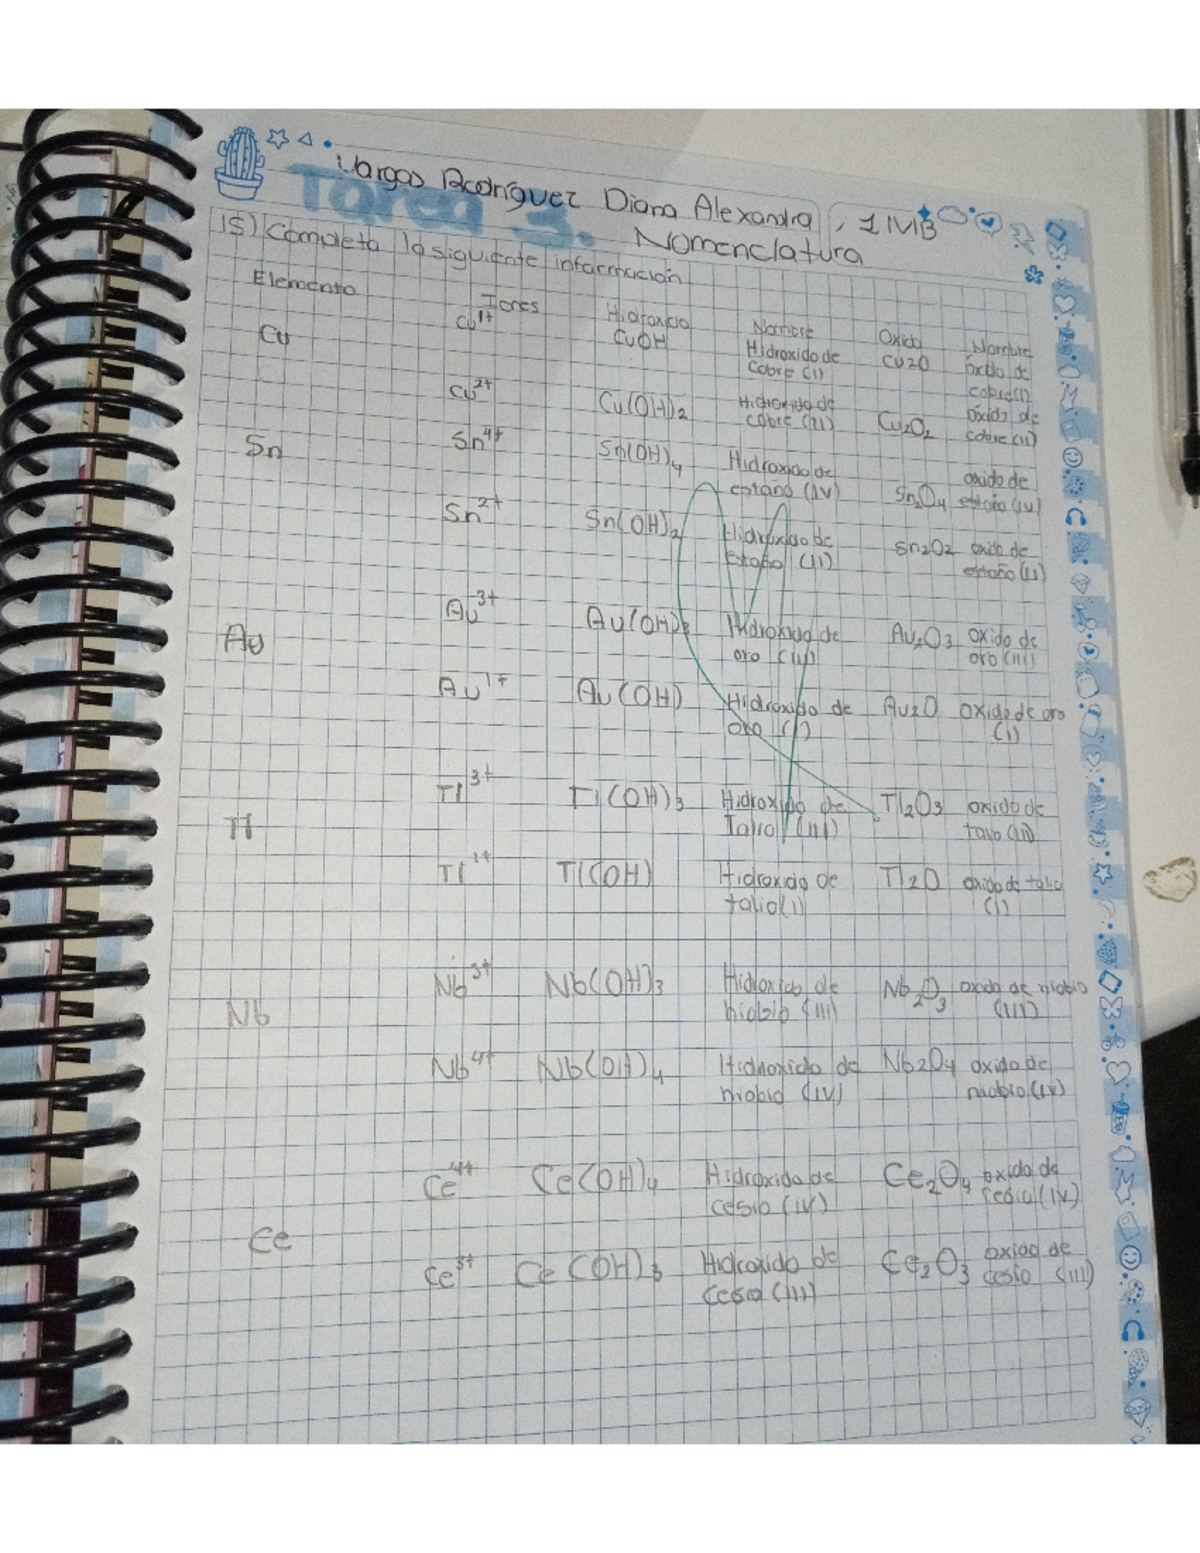 Vargas Rodríguez Diana Alexandra, 1 IVIB
Tarea 3. Nomenclatura
15) Completa la siguiente información
Elemento Iones Hidroxido Nombre Oxido Nombre
Cu Cu1+ CuOH Hidroxido de cobre (I) Cu2O oxido de cobre(I)
Cu2+ Cu(OH)2 Hidroxido de cobre (II) Cu2O2 oxido de cobre (II)
Sn Sn4+ Sn(OH)4 Hidroxido de estaño (IV) Sn2O4 oxido de estaño (IV)
Sn2+ Sn(OH)2 Hidroxido de Estaño (II) Sn2O2 oxido de estaño (II)
Au Au3+ Au(OH)3 Hidroxido de oro (III) Au2O3 oxido de oro (III)
Au1+ Au(OH) Hidroxido de oro (I) Au2O oxido de oro (I)
Tl Tl3+ Tl(OH)3 Hidroxido de Talio (III) Tl2O3 oxido de talio (III)
Tl1+ Tl(OH) Hidroxido de talio(I) Tl2O oxido de talio (I)
Nb Nb3+ Nb(OH)3 Hidroxido de niobio (III) Nb2O3 oxido de niobio (III)
Nb4+ Nb(OH)4 Hidroxido de niobio (IV) Nb2O4 oxido de niobio (IV)
Ce Ce4+ Ce(OH)4 Hidroxido de cesio (IV) Ce2O4 oxido de (IV)
Ce3+ Ce(OH)3 Hidroxido de cesio (III) Ce2O3 oxido de cesio (III)